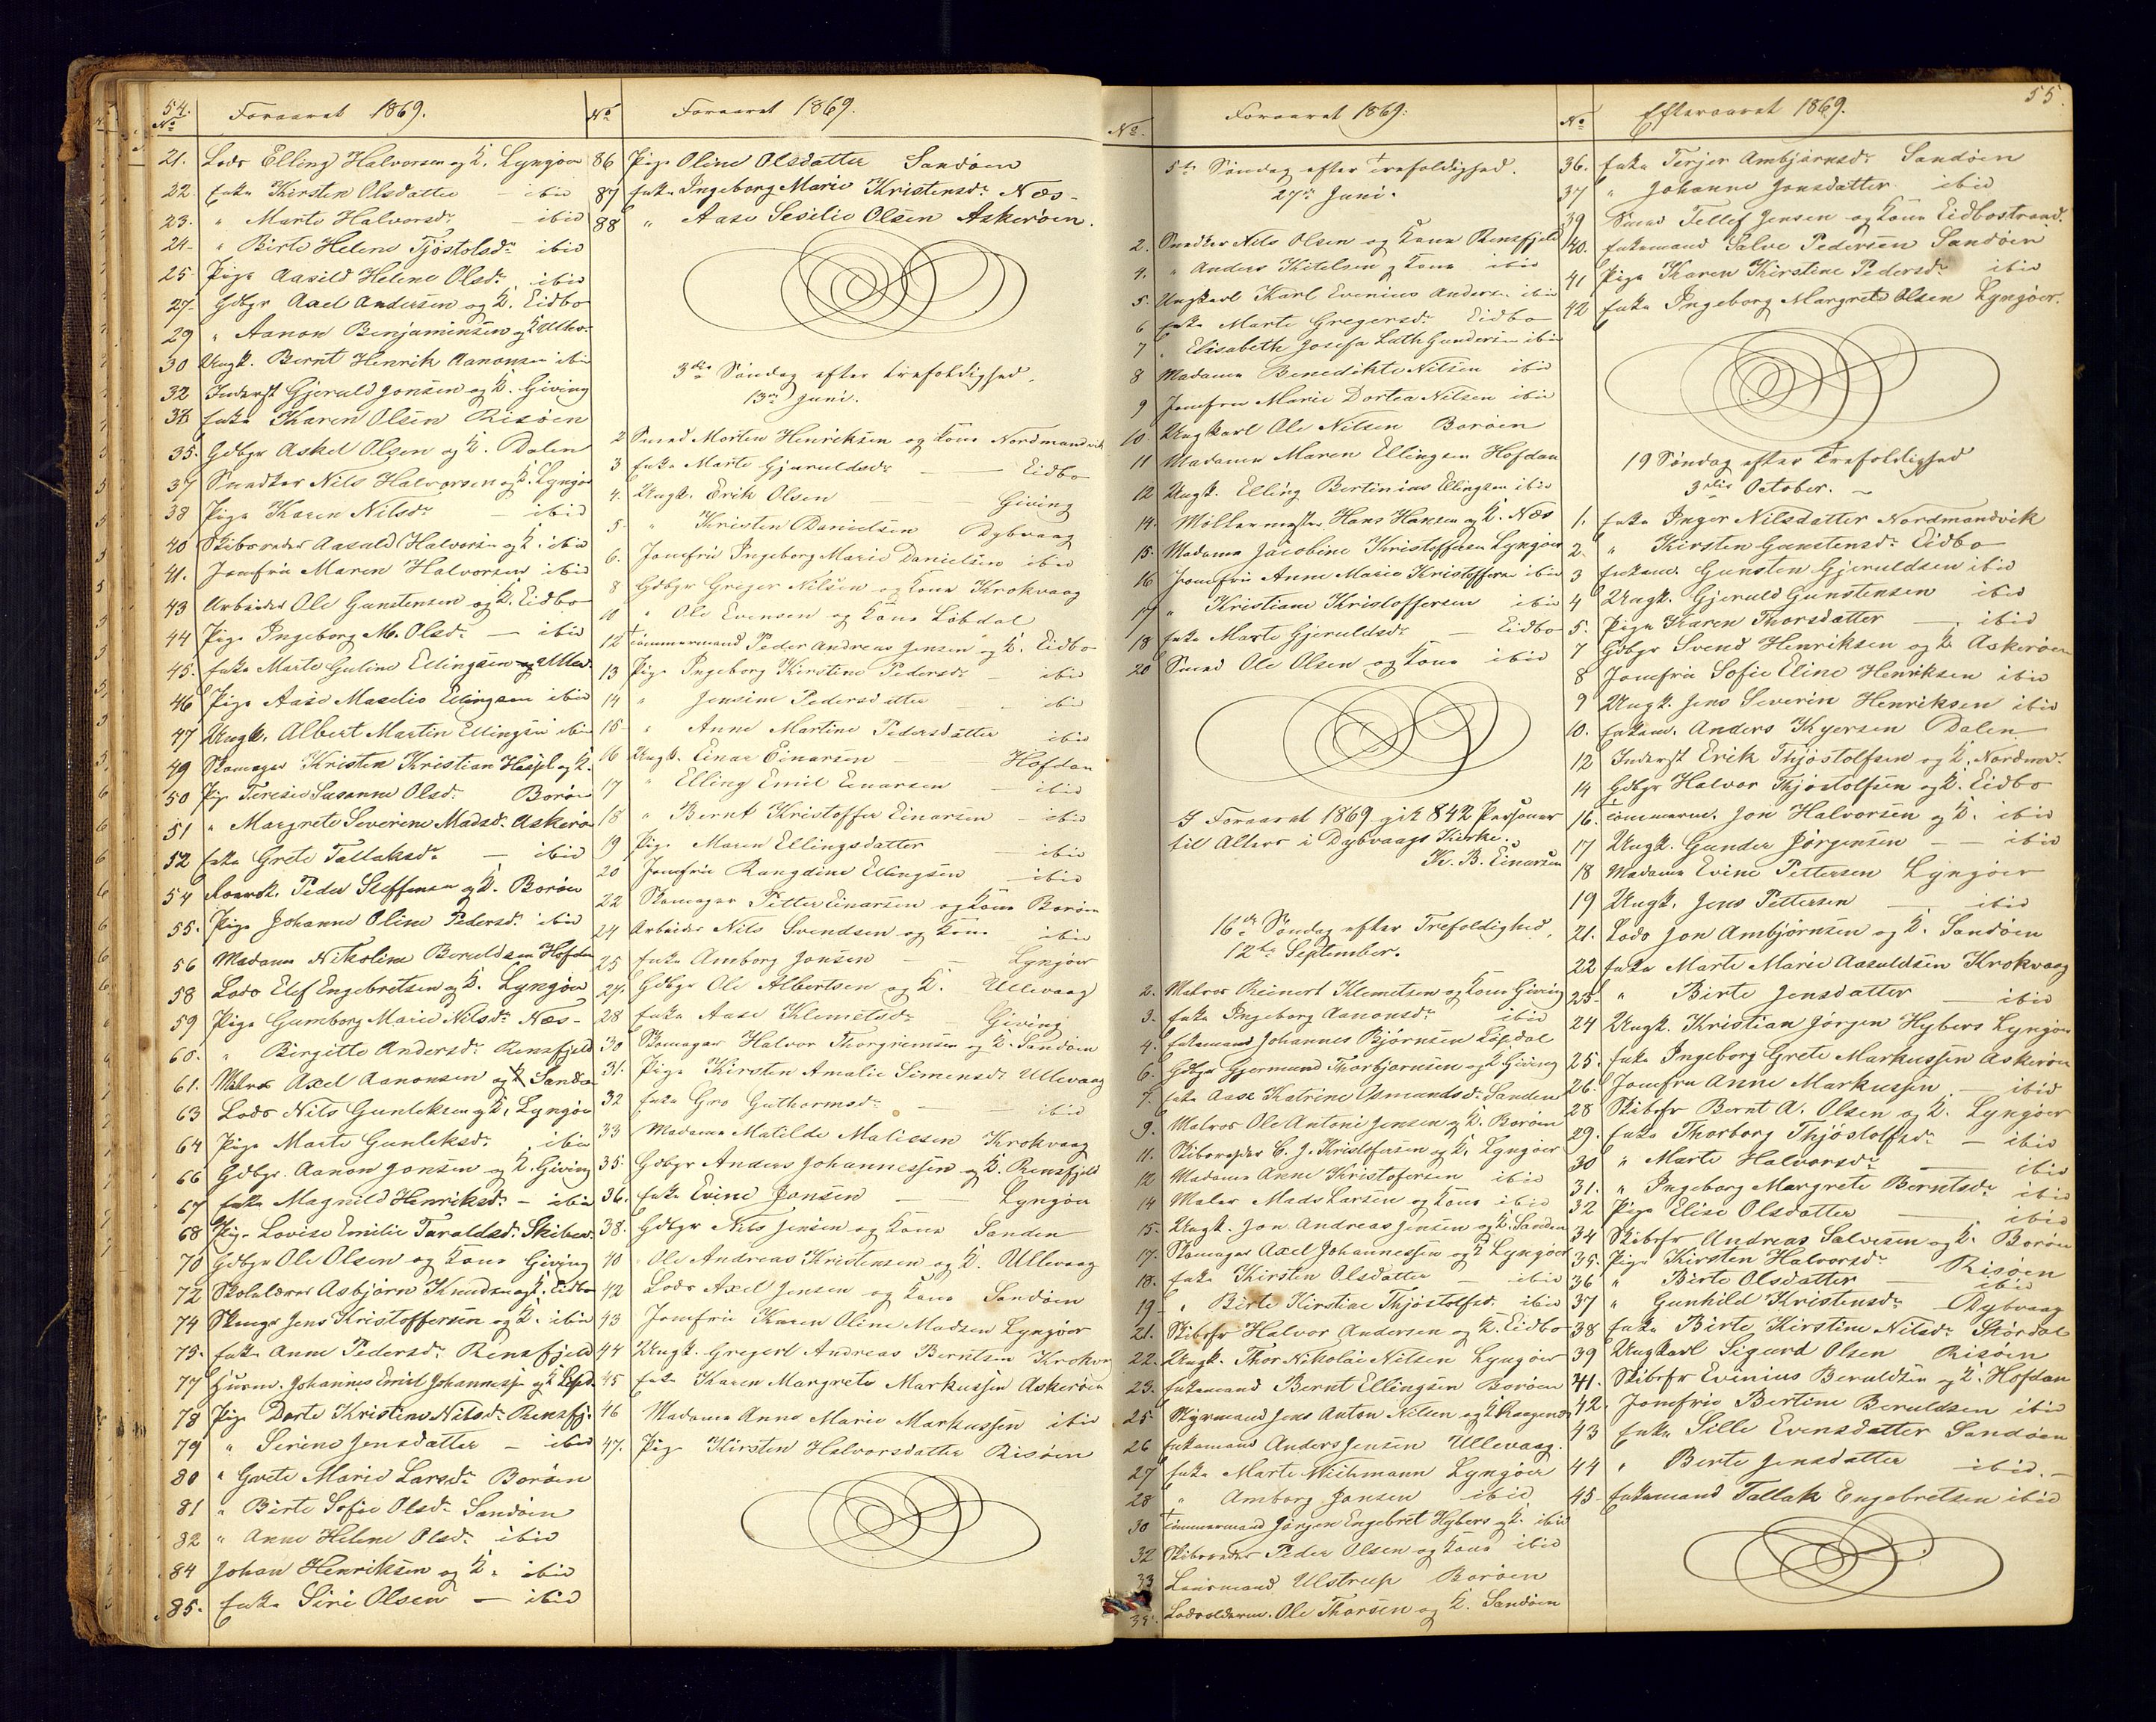 54.
No
Foraaret 1869.
21. Lods Elling Halvorsen og K. Lyngøer
22. Enke Kirsten Olsdatter — ibid
23. " Marte Halvorsdr — ibid
24. " Birte Helene Tjøstolsdr ibid
25 Pige Aasild Helene Olsdr. ibid
27. Gdbgr Axel Andersen og K. Eidbo
29 " Aanon Benjaminsen og K Ullev.
30 Ungk. Bernt Henrik Aanonsen ibid
32 Inderst Gjeruld Jonsen og K. Giving
Enke Karen Olsen Risøen
35. Gdbgr Askel Olsen og K. Dalen
37 Snedker Nils Halvorsen og K. Lyngør
38 Pige Karen Nilsdr — ibid
40 Skibsreder Aasuld Halvorsen og K. ibid
41. Jomfru Maren Halvorsen ibid
43 Arbeider Ole Gunstensen og K. Eidbo
44 Pige Ingeborg M. Olsdr — ibid
45. Enke Marte Guline Ellingsen Ullev.
46 Pige Aase Maselie Ellingsen ibid
47 Ungk. Albert Martin Ellingsen ibid
49 Skomager Kristen Kristian Hassel og K.
50 Pige Teresie Susanne Olsd. Borøen
51 " Margrete Severine Madsdr Askerø
52 Enke Grete Tallaksdr — ibid
54 Peder Steffensen og K. Borøen
55. Pige Johanne Oline Pedersdr ibid
56 Madame Nikoline Beruldsen Hofdan
58 Lods Elef Engebretsen og K. Lyngøer
59 Pige Gumborg Marie Nilsdr Næs —
60. " Birgitte Andersdr Rensfjeld
61. Matros Axel Aanonsen og K Sandø
63 Lods Nils Gunleksen og K. Lyngøer
64 Pige Marte Gunleksdr ibid
66 Gdbgr. Aanon Jonsen og K. Giving
67 Enke Magnild Henriksdr — ibid
68 Pige Lovise Emilie Taraldsdr Skibev.
70 Gdbgr Ole Olsen og Kone Giving
72 Skolelærer Asbjørn Knudsen og K. Eidbo
74 Skomgr Jens Kristoffersen og K. ibid
75. Enke Anne Pedersdr Rensfjeld
77 Johannes Emiel Johannessen og K
78 Pige Dorte Kristine Nilsdr Rensfj.
79 " Serine Jensdatter — ibid
80 " Grete Marie Larsdr Borøen
81 " Birte Sofie Olsdr Sandøen
82 " Anne Helene Olsdr ibid
84 Johan Henriksen og K. ibid
85. Enke Siri Olsen — ibid
No
Foraaret 1869.
86 Pige Oline Olsdatter Sandøen
87 Enke Ingeborg Marie Kristensdr Næs -
88 " Aase Sesilie Olsen Askerøen.
3die Søndag efter Trefoldighed.
13de Juni.
2 Smed Morten Henriksen og Kone Nordmandvik
3 Enke Marte Gjeruldsdr — Eidbo
4. Ungk. Erik Olsen — Giving
5 " Kristen Danielsen Dybvaag
6. Jomfru Ingeborg Marie Danielsen ibid
8 Gdbgr Greger Nilsen og Kone Krokvaag
10 " Ole Evensen og Kone Løbdal
12 Tømmermand Peder Andreas Jensen og K. Eidbo
13 Pige Ingeborg Kirstine Pedersdr — ibid
14 " Jensine Pedersdatter — ibid
15 " Anne Martine Pedersdatter ibid
16 Ungk. Einar Einarsen Hofdan
17 " Elling Emil Einarsen — ibid
18 " Bernt Kristoffer Einarsen — ibid
19 Pige Maren Ellingsdatter — ibid
20 Jomfru Rangdine Ellingsen — ibid
22 Skomager Petter Einarsen og Kone Borøen
24 Arbeider Nils Svendsen og Kone ibid
25 Enke Amborg Jonsen — Lyngøer
27. Gdbgr Ole Albertsen og K. Ullevaag
28 Enke Aase Klemetsdr — Giving
30 Skomager Halvor Thorgremsen og K. Sandøen
31. Pige Kirsten Amalie Simensdr Ullevaag
32 Enke Gro Guthormsdr — ibid
33 Madame Matilde Maliessen Krokvaag
35. Gdbgr Anders Johannessen og K. Rensfjeld
36. Enke Evine Jonsen — Lyngøer
38. Gdbgr Nils Jensen og Kone Sanden
40 Ole Andreas Kristensen og K. Ullevaag
42 Lods Axel Jensen og Kone Sandøen
43 Jomfru Karen Oline Madsen Lyngøer
44 Ungk. Gregert Andreas Berntsen Krokv
45 Enke Karen Margrete Markussen Askerøen
46 Madame Anne Marie Markussen ibid
47. Pige Kirsten Halvorsdatter Risøen
No.
Foraaret 1869.
5te Søndag efter Trefoldighed.
27de Juni.
2. Snedker Nils Olsen og Kone Rensfjeld
4. " Anders Kitelsen og Kone ibid
5. Ungkarl Karl Evenius Anders. ibid
6 Enke Marte Gregersdr Eidbo
7 " Elisabeth Josefa Lath Gundersen ibid
8 Madame Benedikte Nilsen ibid
9 Jomfru Marie Dortea Nilsen ibid
10. Ungkarl Ole Nilsen Borøen
11 Madame Maren Ellingsen Hofdan
12 Ungk. Elling Bertinius Ellingsen ibid
14. Møllermester Hans Hansen og K. Næs
15. Madame Jacobine Kristoffersen Lyngøer
16 Jomfru Anne Marie Kristoffersen ibid
17 " Kristiane Kristoffersen ibid
18 Enke Marte Gjeruldsdr — Eidbo
20 Smed Ole Olsen og Kone ibid
I Foraaret 1869 gik 842 Personer
til Alters i Dybvaags Kirke.
K. B. Einarsen
16de Søndag efter Trefoldighed.
12te September.
2. Matros Reinert Klemetsen og Kone Giving
3. Enke Ingeborg Aanonsdr ibid
4. Enkemand Johannes Bjørnsen Løvdal
6. Gdbgr Gjermund Thorbjørnsen og K Giving
7. Enke Aase Katrine Osmundsdr Sanden
9. Matros Ole Antoni Jensen og K. Borøen
11. Skibsreder C. J. Kristofersen og K. Lyngøer
12 Madame Anne Kristofersen ibid
14 Maler Mads Larsen og Kone ibid
15. Ungk. Jon Andreas Jensen og K. Sanden
17. Skomager Axel Johannessen og K Lyngøer
18. Enke Kirsten Olsdatter — ibid
19 " Birte Kirstine Thjøstolfsd. ibid
21. Skibsfr Halvor Andersen og K. Eidbo
22. Ungk. Thor Nikolai Nilsen Lyngøer
23. Enkemand Bernt Ellingsen Borøen
25 Styrmand Jens Anton Nilsen og K
26 Enkemand Anders Jensen Ullevaag.
27 Enke Marte Wichmann Lyngøer
28 " Amborg Jonsen ibid
30 Tømmermand Jørgen Engebret Hybers og K. ibid
32 Skibsreder Peder Olsen og Kone ibid
33 Lensmand Ulstrup Borøen
35. Lodsolderm. Ole Thorsen og K. Sandøen
No
Efteraaret 1869.
55.
36. Enke Terjer Ambjørnsdr Sandøen
37 " Johanne Jonsdatter ibid
39 Smed Tellef Jensen og Kone Eidbostrand.
40. Enkemand Salve Pedersen Sandøen
41 Pige Karen Kirstine Pedersdr ibid
42 Enke Ingeborg Margrete Olsen Lyngøer.
19 Søndag efter Trefoldighed
3die October. —
1. Enke Inger Nilsdatter Nordmandvik
2. " Kirsten Gunstensdr Eidbo
3 Enkem. Gunsten Gjeruldsen ibid
4 Ungk. Gjeruld Gunstensen ibid
5. Pige Karen Thorsdatter — ibid
7 Gdbgr Svend Henriksen og K Askerøen
8 Jomfru Sofie Eline Henriksen ibid
9 Ungk. Jens Severin Henriksen ibid
10. Enkem. Anders Kyersen Dalen —
12 Inderst Erik Thjøstolfsen og K. Nordmv.
14 Gdbgr Halvor Thjøstolfsen og K. Eidbo
16. Tømmerm. Jon Halvorsen og K. ibid
17 Ungk. Gunder Jørgensen — ibid
18 Madame Evine Pettersen Lyngøer
19 Ungk. Jens Pettersen — ibid
21. Lods Jon Ambjørnsen og K. Sandøen
22 Enke Marte Marie Aasuldsen Krokvaag
23. " Birte Jensdatter — ibid
24 Ungk. Kristian Jørgen Hybers Lyngøer
25. Enke Ingeborg Grete Markussen Askerøen
26. Jomfru Anne Markussen — ibid
28 Skibsfr Bernt A. Olsen og K. Lyngøer
29. Enke Thorborg Thjøstolfsdr — ibid
30 " Marte Halvorsdr — ibid
31. " Ingeborg Margrete Berntsdr ibid
32 Pige Elise Olsdatter — ibid
34 Skibsfr Andreas Salvesen og K. Borøen
35. Pige Kirsten Halvorsdr Risøen
36 " Birte Olsdatter — ibid
37 " Gunhild Kristensdr Dybvaag
38 Enke Birte Kirstine Nilsdr Skørdal
39 Ungkarl Sigurd Olsen Risøen
41. Skibsfr Evinius Beruldsen og K. Hofdan
42. Jomfru Bertine Beruldsen ibid
43 Enke Sille Evensdatter Sandøen
44 " Berte Jensdatter ibid. —
45 Enkemand Tallak Engebretsen ibid